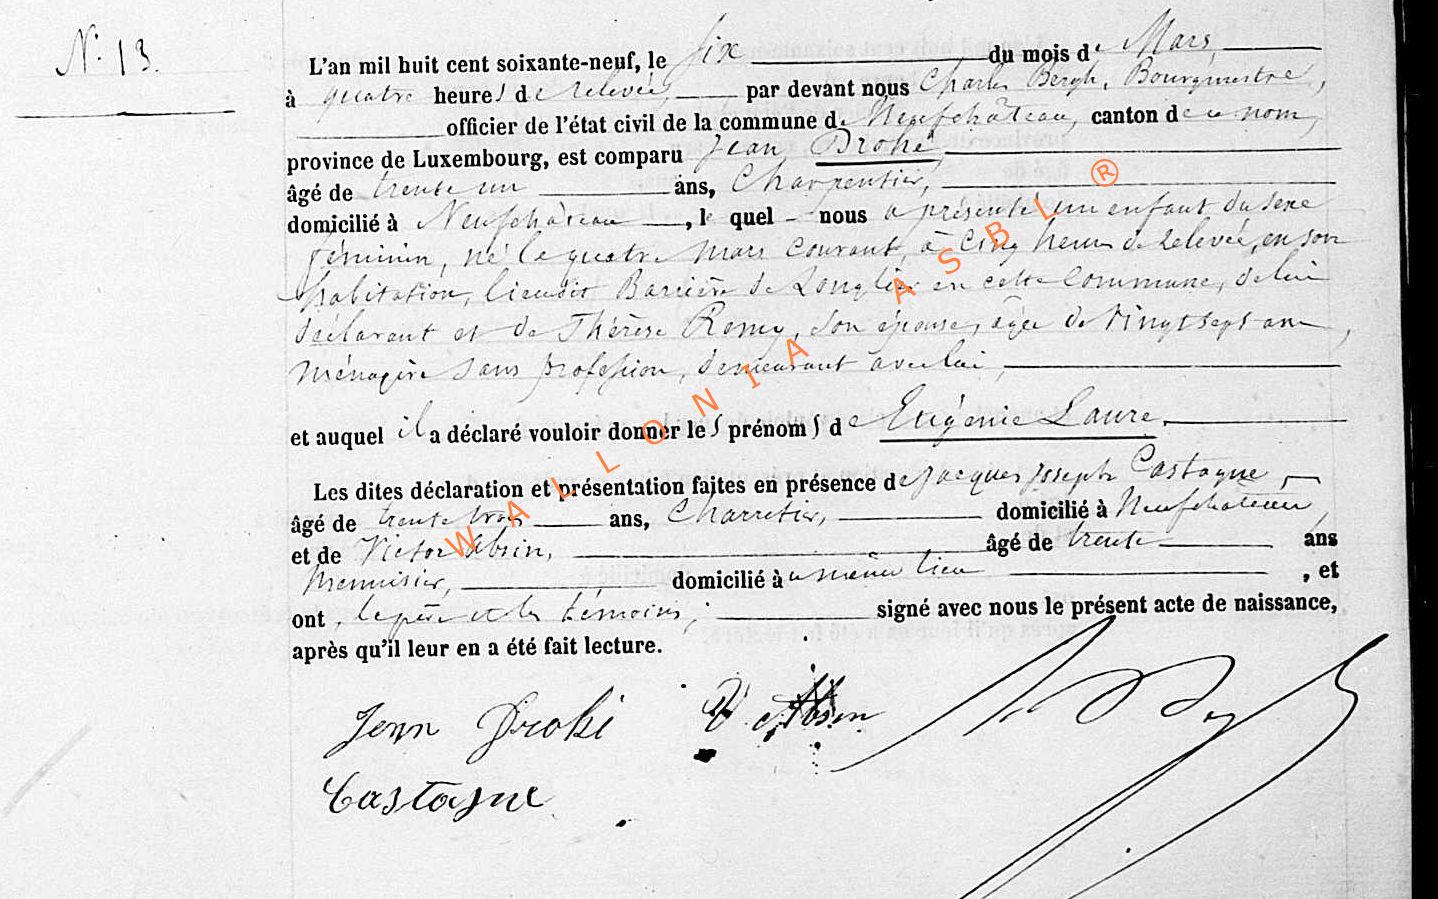 N° 13.
L'an mil huit cent soixante-neuf, le six du mois de Mars
à quatre heures de relevée, par devant nous Charles Bergh, Bourgmestre,
officier de l'état civil de la commune de Neufchâteau, canton de ce nom,
province de Luxembourg, est comparu Jean Drohé
âgé de trente un ans, Charpentier,
domicilié à Neufchâteau, le quel nous a présenté un enfant du sexe
féminin, né le quatre Mars courant, à cinq heures de relevée, en son
habitation, lieudit Barrière de Longlier en cette commune, de lui
déclarant et de Thérèse Remy, son épouse, âgée de vingt sept ans,
ménagère sans profession, demeurant avec lui,
et auquel il a déclaré vouloir donner les prénoms de Eugénie Laure.
Les dites déclaration et présentation faites en présence de Jacques Joseph Castagne,
âgé de trente trois ans, Charretier, domicilié à Neufchateau,
et de Victor Absin, âgé de trente ans
Menuisier, domicilié au même lieu, et
ont, le père et les témoins, signé avec nous le présent acte de naissance,
après qu'il leur en a été fait lecture.
Jean Drohé V Absin
Castagne
WALLONIA ASBL ®